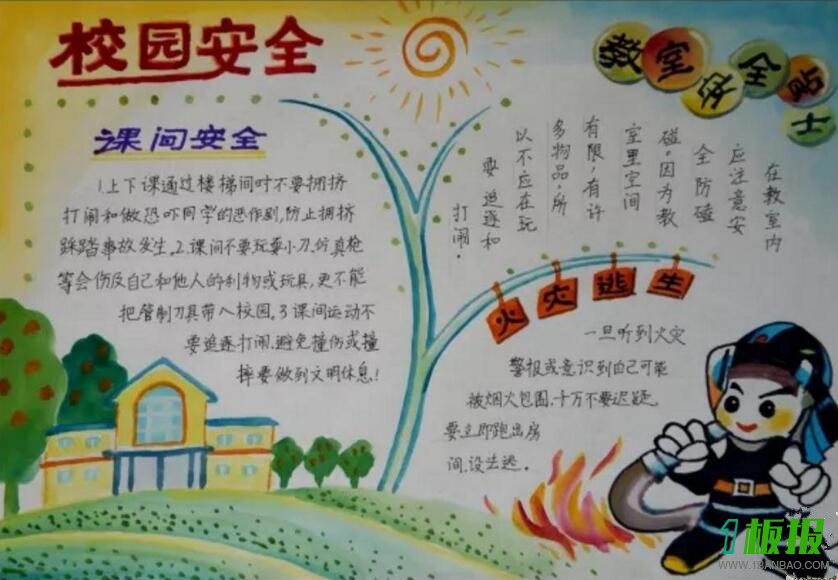 校园安全
课间安全
1.上下课通过楼梯间时不要拥挤
打闹和做恐吓同学的恶作剧,防止拥挤
踩踏事故发生.2.课间不要玩耍小刀,仿真枪
等会伤及自己和他人的利物或玩具,更不能
把管制刀具带入校园.3课间运动不
要追逐打闹,避免撞伤或撞
摔要做到文明休息!
教室安全贴士
在教室内
应注意安
全防磕
碰。因为教
室里空间
有限,有许
多物品,所
以不应在玩
要追逐和
打闹。
火灾逃生
一旦听到火灾
警报或意识到自己可能
被烟火包围,千万不要迟疑,
要立即跑出房
间,设法逃。
1板报
WWW.1BANBAO.COM